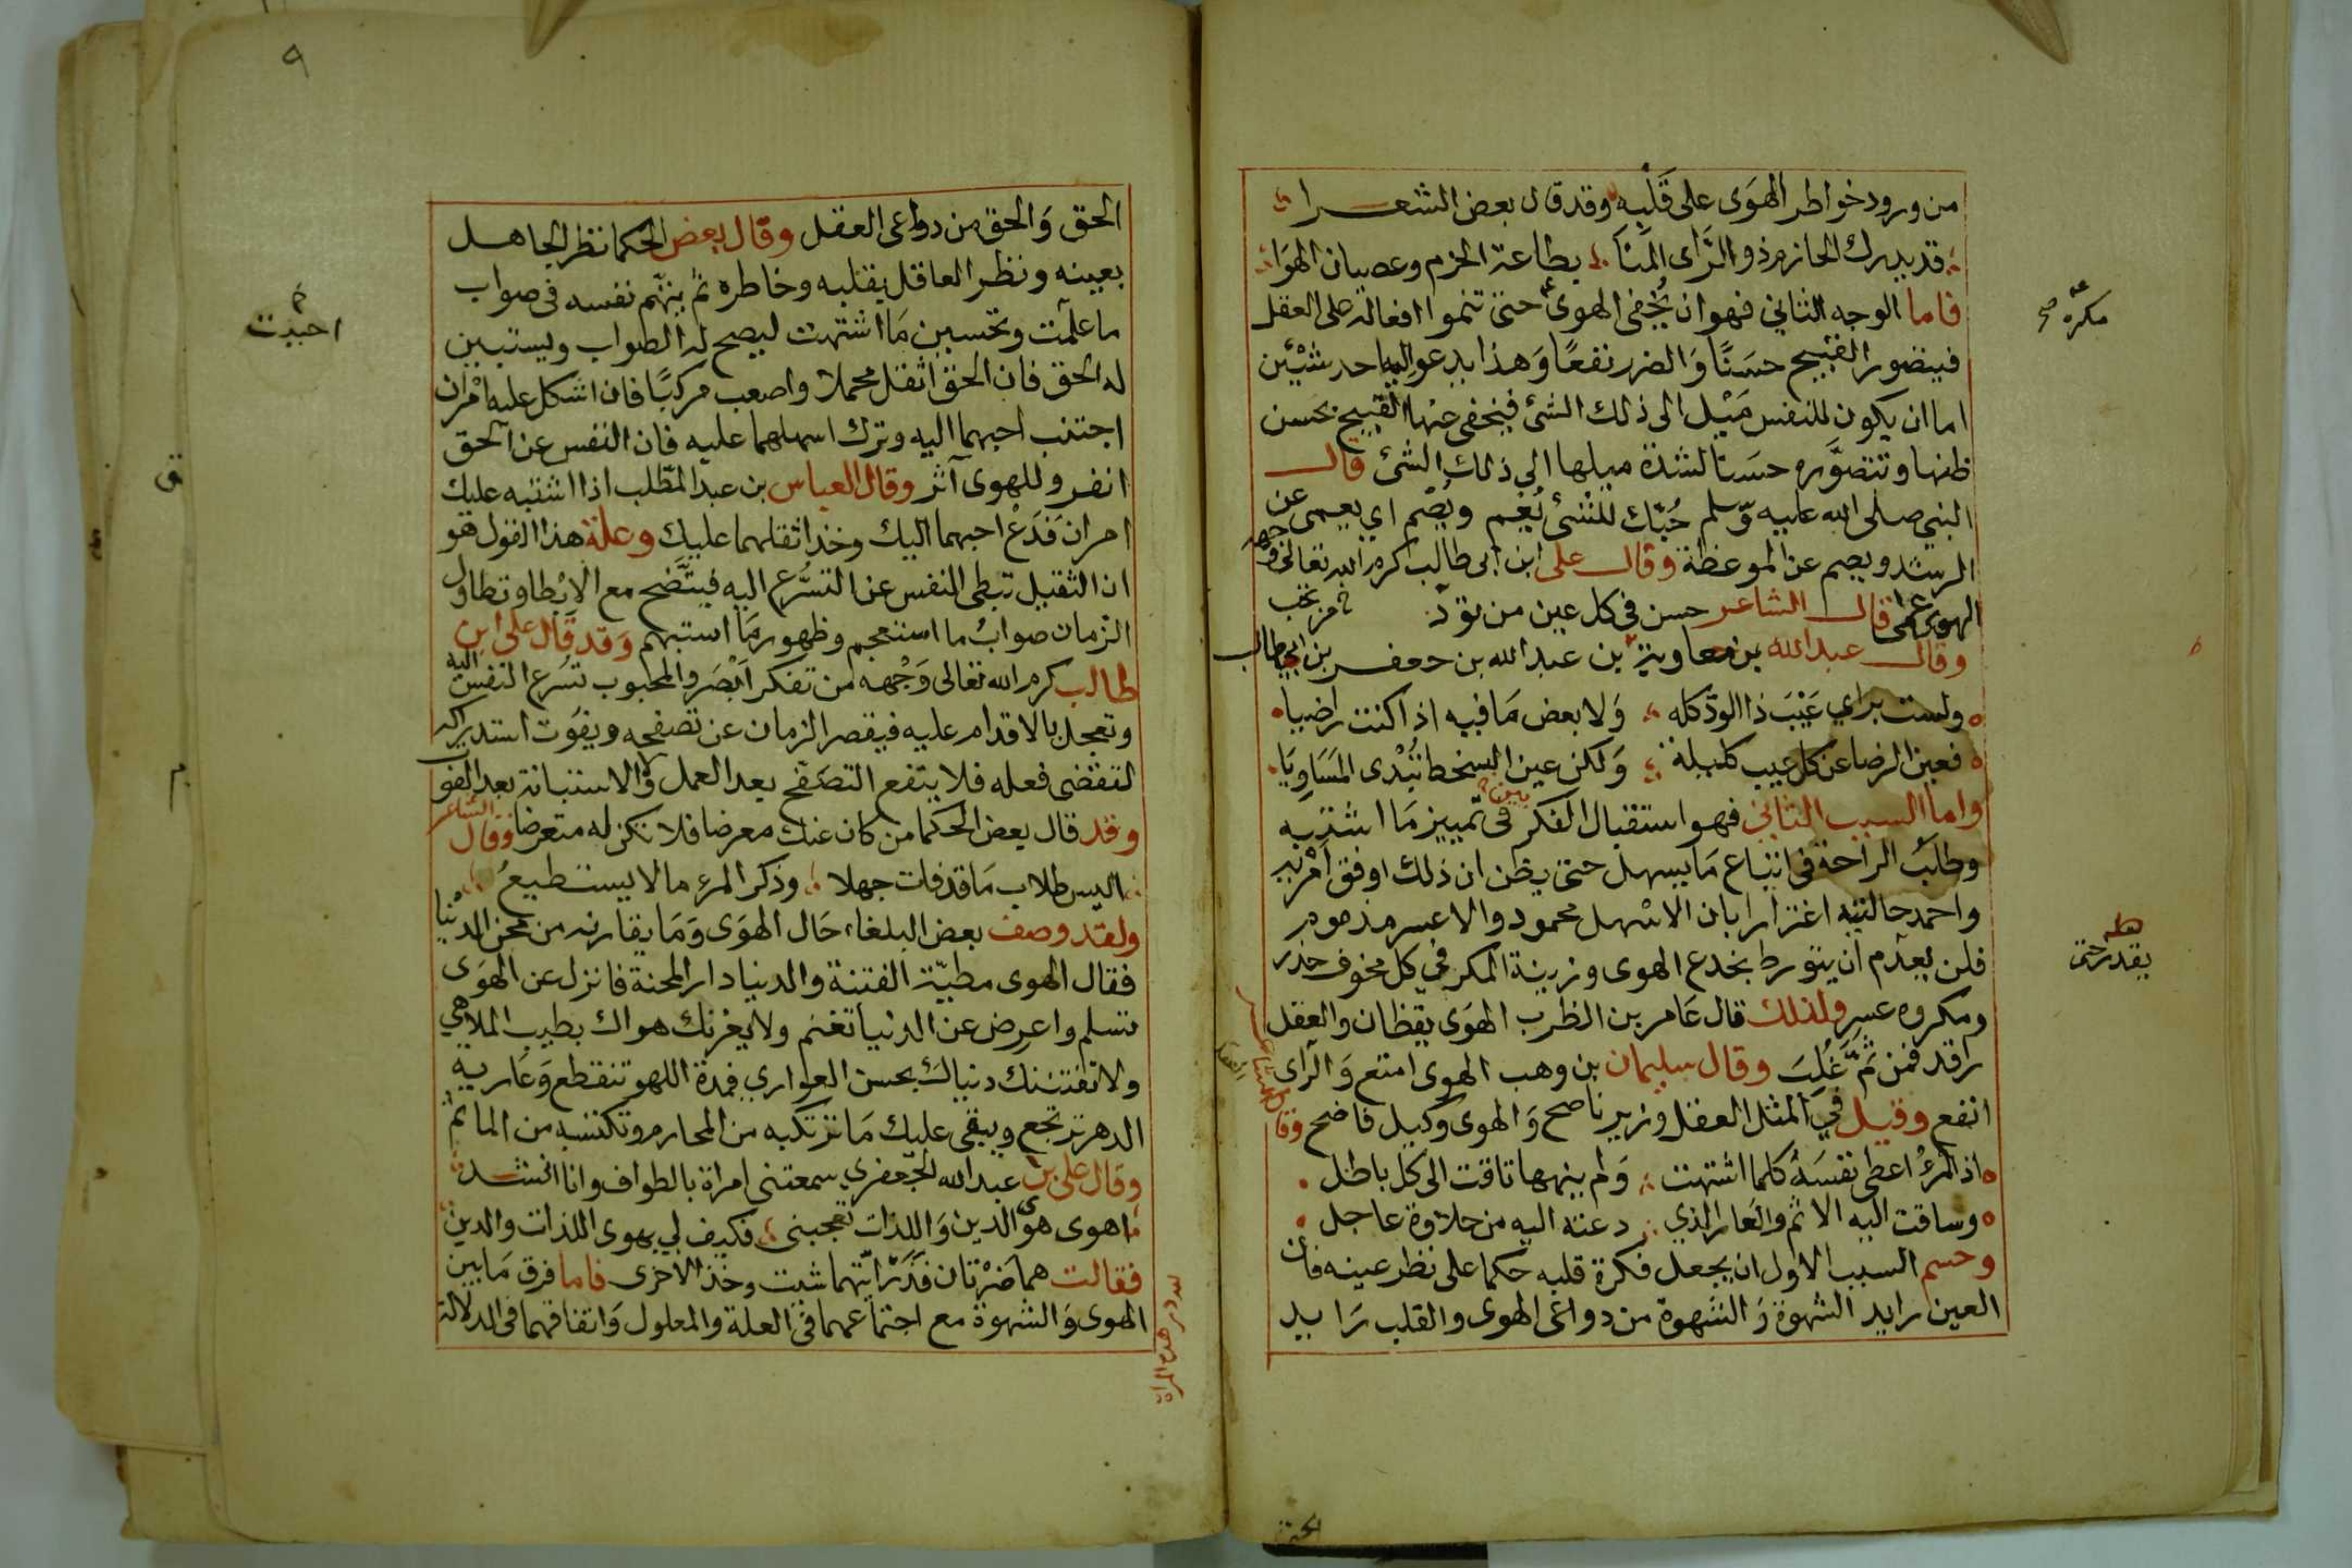 من ورود خواطر الهوى على قلبه وقد قال بعض الشعرا
قد يدرك الحازم ذو الرأى المنا بطاعة الحزم وعصيان الهوا
فاما الوجه الثاني فهو ان يخفى الهوى حتى تنموا افعاله على العقل
فيتصور القبيح حسنًا والضرر نفعًا وهذا يدعو اليه احد شيئين
اما ان يكون للنفس ميل الى ذلك الشئ فيخفى عنها القبيح بحسن
ظنها وتتصوره حسنا لشدة ميلها الى ذلك الشئ قال
النبى صلى الله عليه وسلم حبّك للشئ يُعم ويُصم اي يعمى عن
الرشد ويصم عن الموعظة وقال على ابن ابى طالب كرم الله تعالى وجهه
الهوى عمى قال الشاعر حسن في كل عين من تود
وقال عبد الله بن معاوية بن عبد الله بن جعفر بن ابي طالب
ولست براي عيب ذا الود كله ولا بعض ما فيه اذا كنت راضيا
فعين الرضا عن كل عيب كليلة ولكن عين السخط تبدى المساويا
واما السبب الثاني فهو استقبال الفكر في تمييز ما اشتبه
وطلب الراحة في اتباع ما يسهل حتى يظن ان ذلك اوفق امريه
واحمد حالتيه اغترارا بان الاسهل محمود والاعسر مذموم
فلن يعدم ان يتورط بخدع الهوى وزينة المكر في كل مخوف حذر
ومكروه عسر ولذلك قال عامر بن الظرب الهوى يقظان والعقل
راقد فمن ثم غلب وقال سليمان بن وهب الهوى امتع والرأى
انفع وقيل في المثل العقل وزير ناصح والهوى وكيل فاضح وقال الشاعر
اذا المرء اعطى نفسه كلما اشتهت ولم ينهها تاقت الى كل باطل
وساقت اليه الاثم والعار الذي دعته اليه من حلاوة عاجل
وحسم السبب الاول ان يجعل فكرة قلبه حكما على نظر عينه فان
العين رايد الشهوة والشهوة من دواعى الهوى والقلب رايد
مكره صح
يقدر حتى
٩
الحق والحق من دواعى العقل وقال بعض الحكما نظر الجاهل
بعينه ونظر العاقل بقلبه وخاطره ثم يتهم نفسه فى صواب
ما علمت وتحسين ما اشتهت ليصح له الصواب ويستبين
له الحق فان الحق اثقل محملا واصعب مركبًا فان اشكل عليه امران
اجتنب احبهما اليه وترك اسهلهما عليه فان النفس عن الحق
انفر وللهوى آثر وقال العباس بن عبد المطلب اذا اشتبه عليك
امران فدع احبهما اليك وخذ اثقلهما عليك وعلة هذا القول هو
ان الثقيل تبطى النفس عن التسرع اليه فيتضح مع الابطا وتطاول
الزمان صواب ما استعجم وظهور ما استبهم وقد قال على ابن
طالب كرم الله تعالى وجهه من تفكر ابصر والمحبوب تسرع النفس اليه
وتعجل بالاقدام عليه فيقصر الزمان عن تصفحه ويفوت استدراكه
لتقضى فعله فلا ينفع التصفح بعد العمل ولا الاستبانة بعد الفوت
وقد قال بعض الحكما من كان عنك معرضا فلا تكن له متعرضا وقال الشاعر
اليس طلاب ما قد فات جهلا وذكر المرء ما لا يستطيع
ولقد وصف بعض البلغاء حال الهوى وما يقارنه من محن الدنيا
فقال الهوى مطيّة الفتنة والدنيا دار المحنة فانزل عن الهوى
تسلم واعرض عن الدنيا تغنم ولا يغرنك هواك بطيب الملاهي
ولا تفتننك دنياك بحسن العواري فمدة اللهو تنقطع وعارية
الدهر ترتجع ويبقى عليك ما ترتكبه من المحارم وتكتسبه من المآثم
وقال على بن عبد الله الجعفري سمعتنى امراة بالطواف وانا انشد
اهوى هوى الدين واللذات تعجبنى فكيف لي بهوى اللذات والدين
فقالت هما ضرتان فذر ايتهما شيت وخذ الاخرى فاما فرق ما بين
الهوى والشهوة مع اجتماعهما في العلة والمعلول واتفاقهما فى الدلالة
لله در هذه المراة